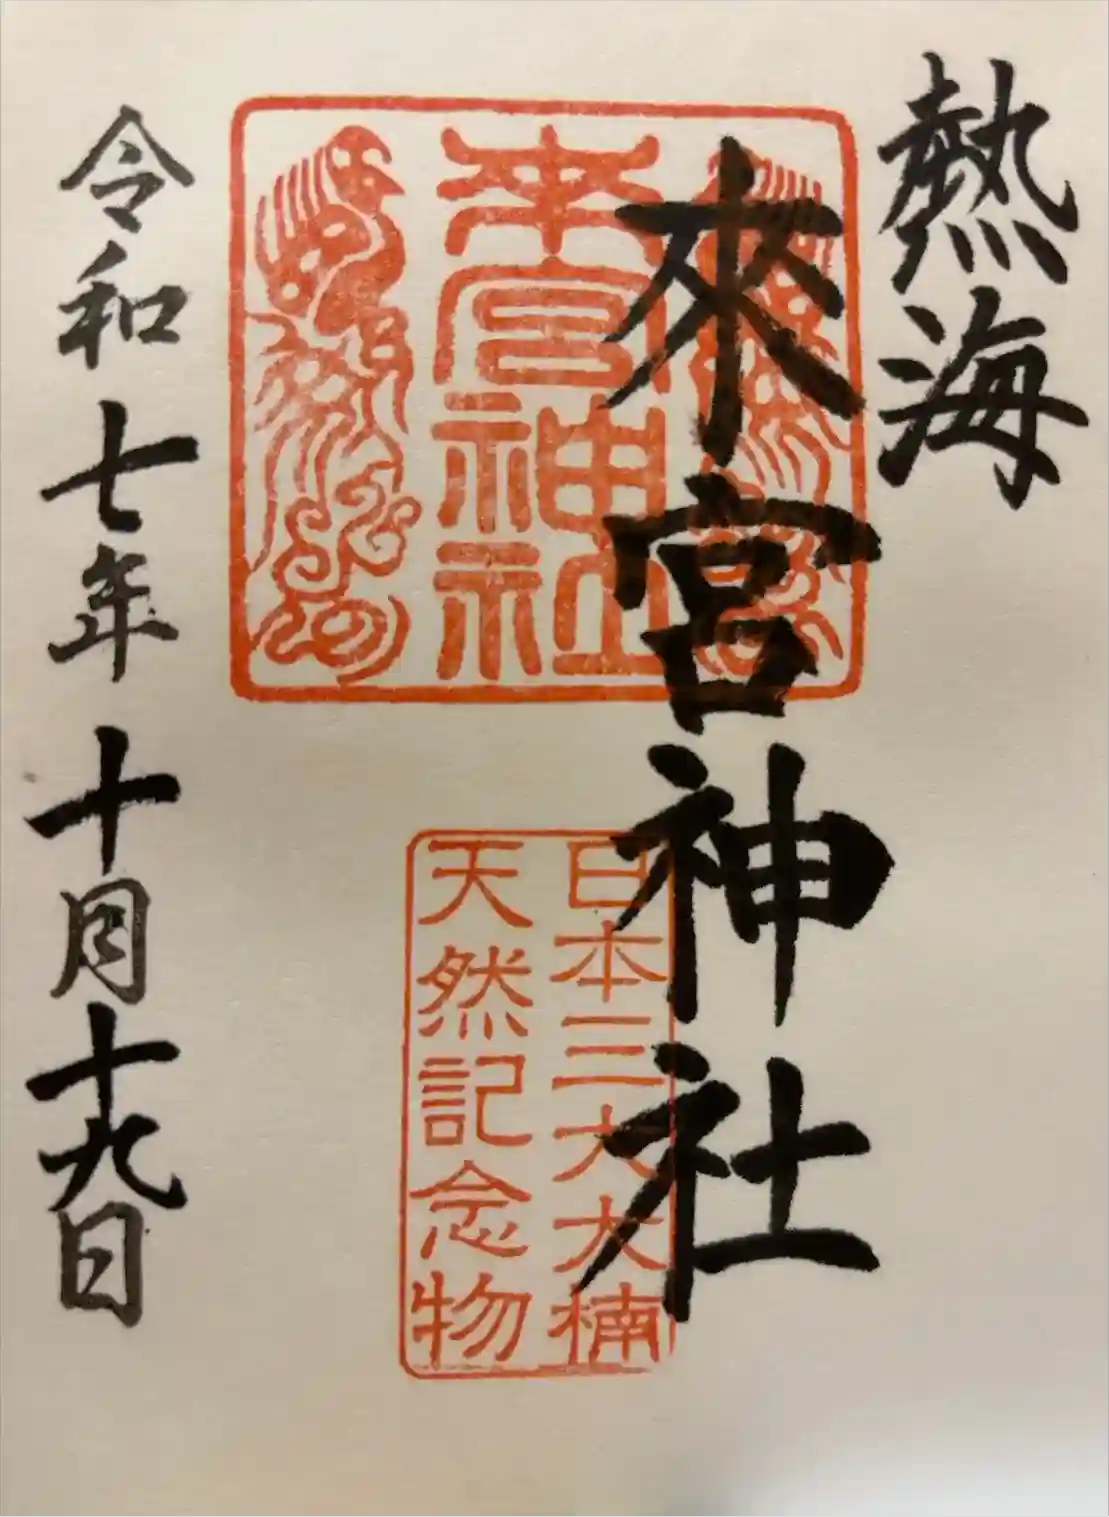 熱海
來宮神社
來宮神社
日本三大大楠
天然記念物
令和七年十月十九日